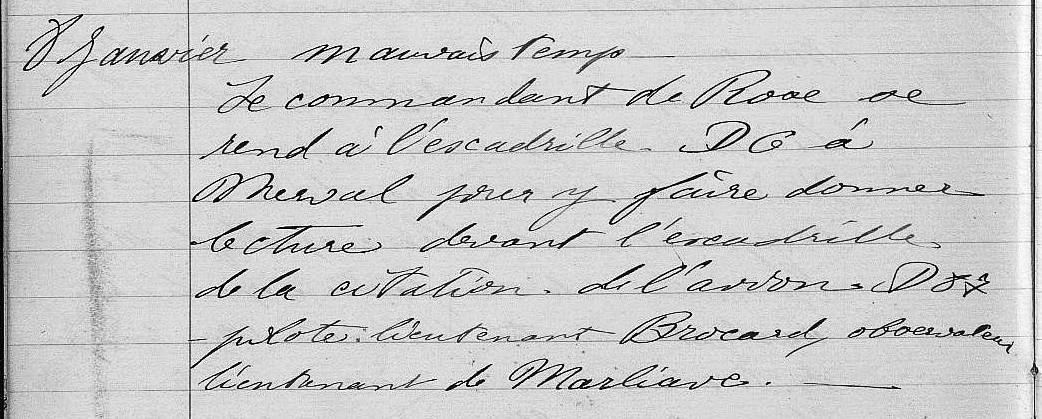 8 Janvier mauvais temp
Le commandant de Rose se
rend à l'escadrille D 6 à
Merval pour y faire donner
lecture devant l'escadrille
de la citation de l'avion D
pilote lieutenant Brocard, observateur
lieutenant de Marliave.